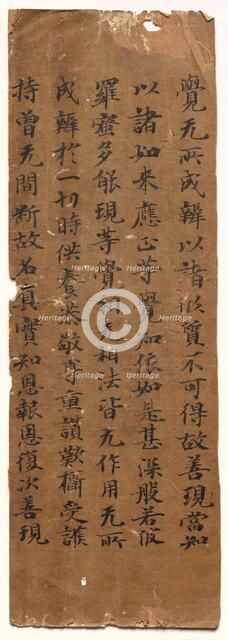 覺无所成辦以諸形質不可得故善現當知
以諸如來應正等覺皆依如是甚深般若波
羅蜜多能現等覺相法皆无作用无所
成辦於一切時供養恭敬尊重讚歎攝受護
持曾无間斷故名真實知恩報恩復次善現
Heritage
Images
Heritage
Images
Heritage
Images
Heritage
Images